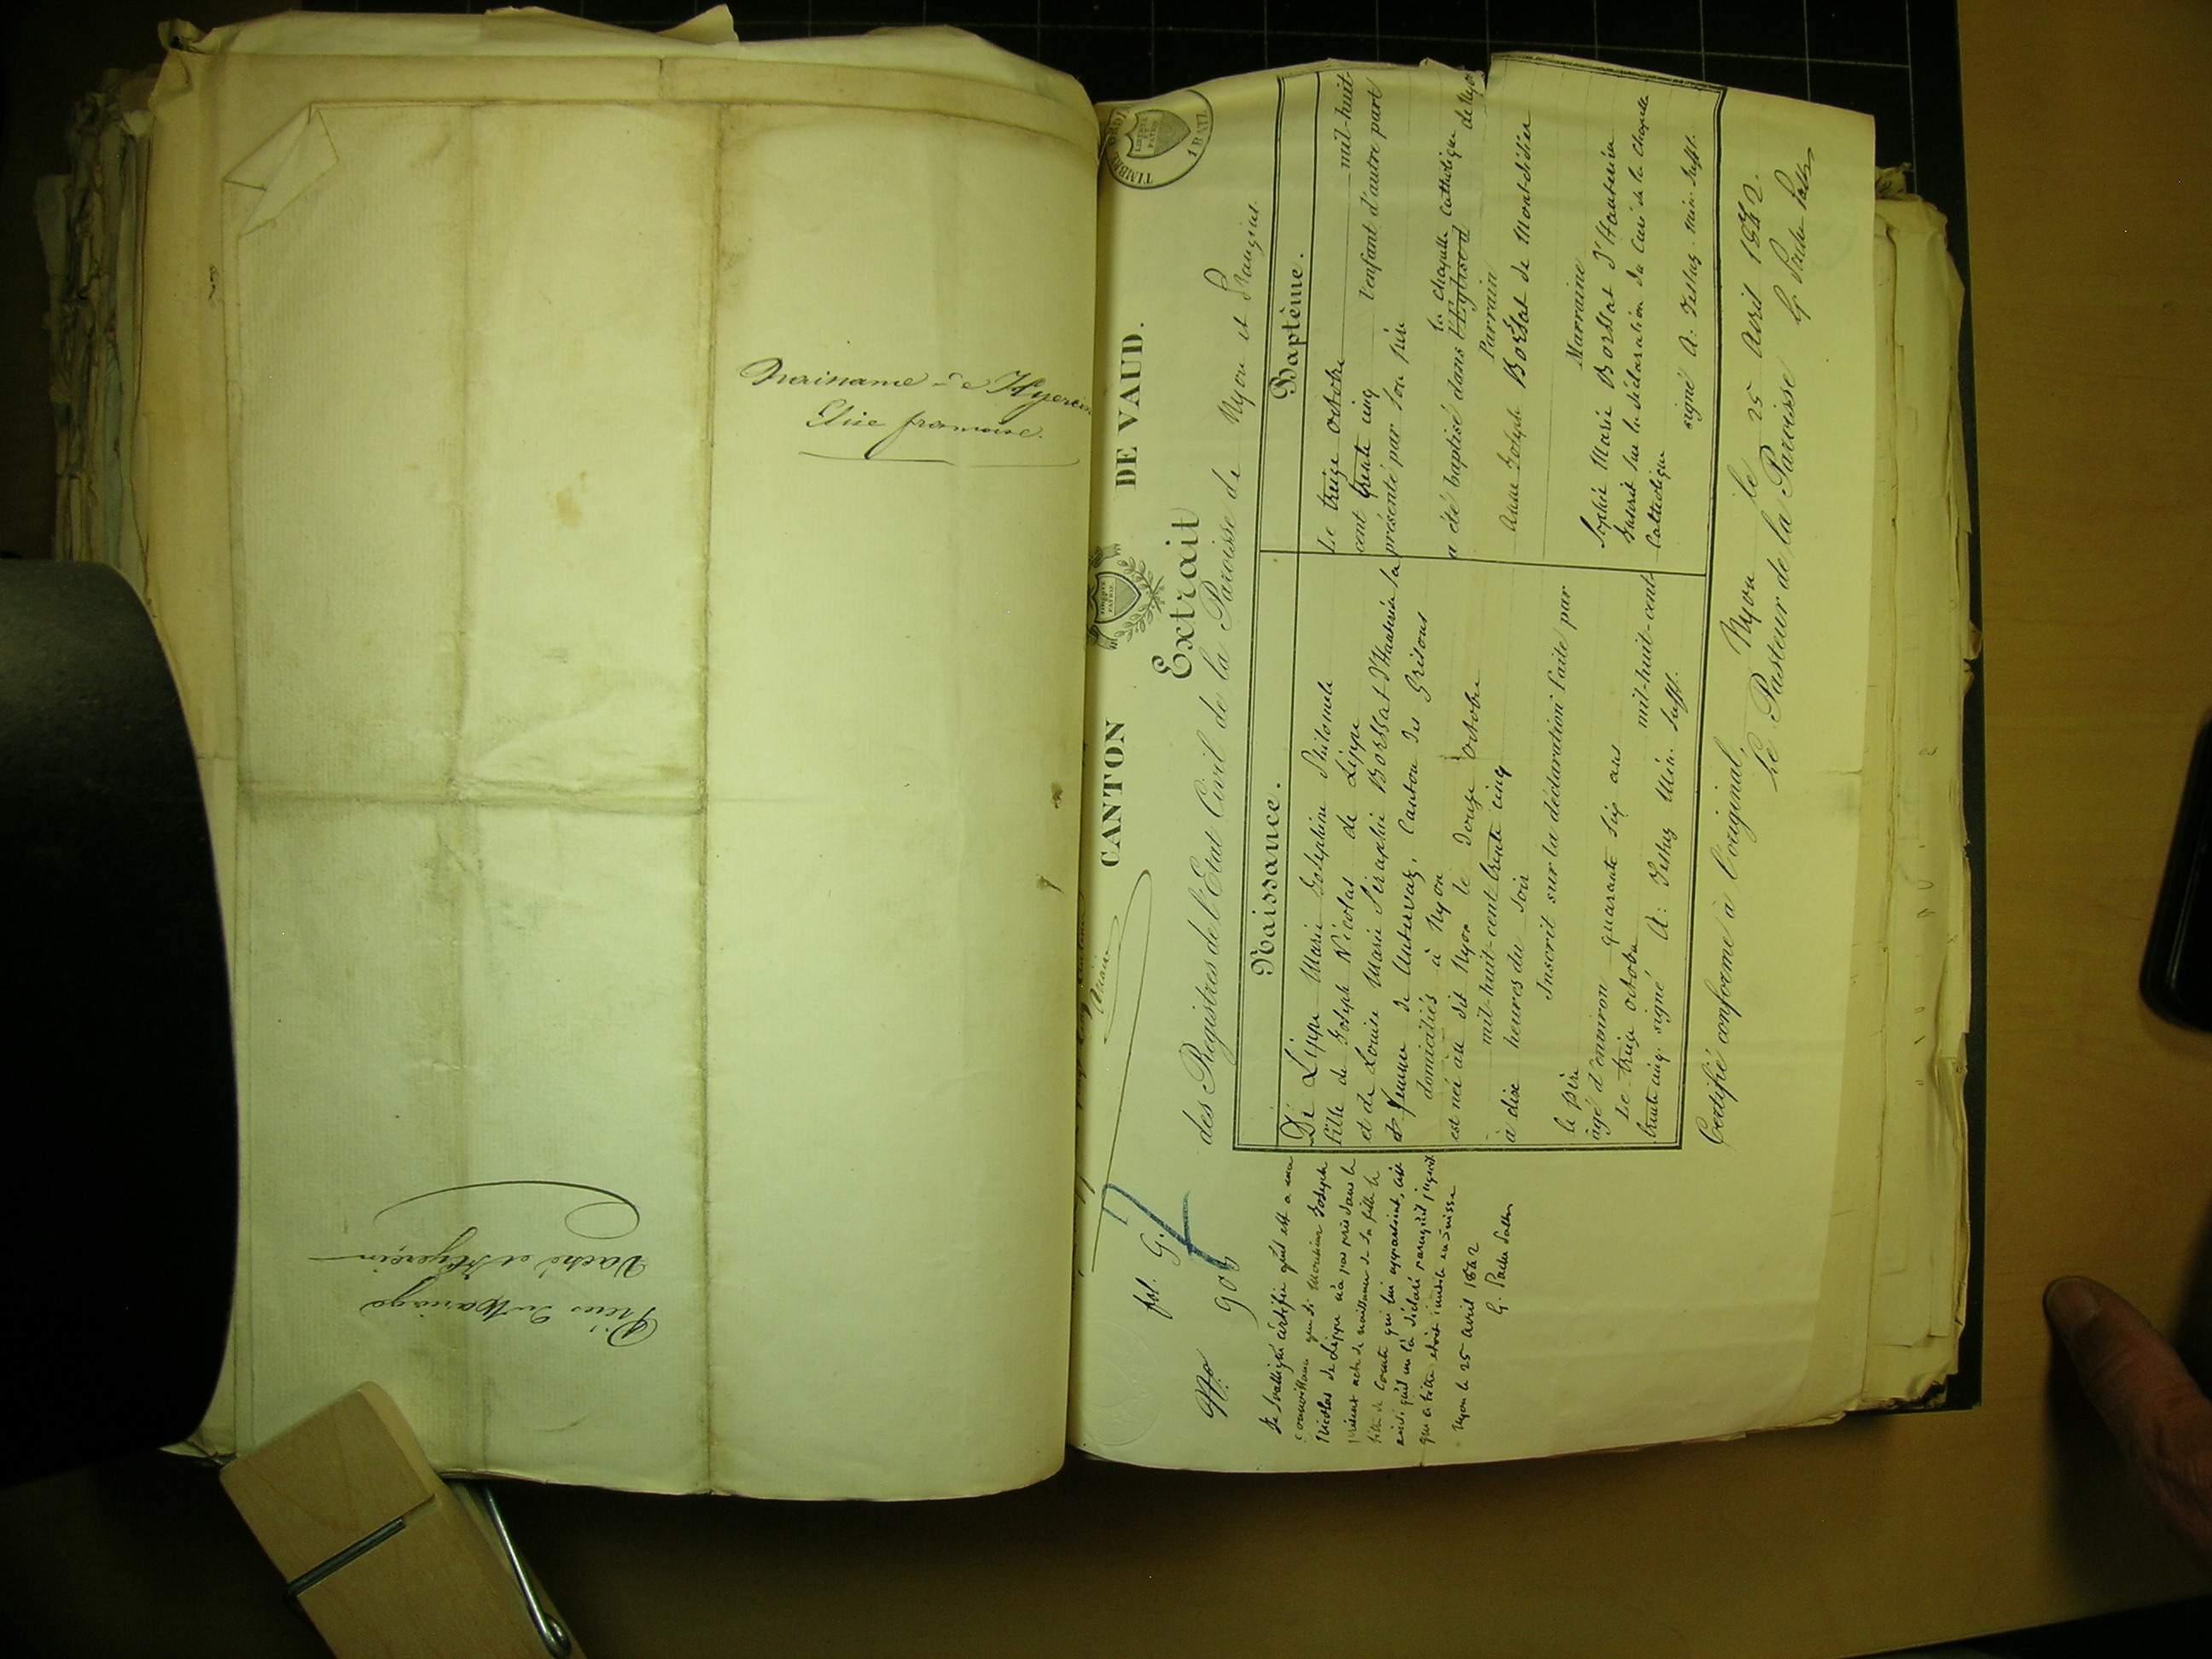 Elise
Pièces du Mariage
Vaché et Hyercin
CANTON DE VAUD.
TIMBRE
1 BATZ
LIBERTÉ ET PATRIE
Extrait
des Registres de l'Etat Civil de la Paroisse de Nyon et Prangins
fol. G.
908
Naissance.
De Lippe Marie Joséphine Philomele
fille de Joseph Nicolas de Lippe
et de Louise Marie Séraphie Borssat d'Hauterive la
femme de Autervaz, Canton des Grisons
domiciliés à Nyon
est née au dit Nyon le douze Octobre
mil-huit-cent trente cinq
à dix heures du soir
Inscrit sur la déclaration faite par
le père
âgé d'environ quarante six ans
Le treize octobre mil-huit-cent
trente cinq. signé A: Min. Suff.
Baptême.
Le treize octobre mil-huit
cent trente cinq l'enfant d'autre part
présenté par son père
la chapelle Catholique
a été baptisé dans l'Eglise d de Nyon
Parrain
Joseph Borssat de Montdidier
Marraine
Sophie Marie Borssat d'Hauterive
Inscrit sur la déclaration du Curé de la Chapelle
Catholique
signé A: Min. Suff.
Certifié conforme à l'original,
Nyon le 25 Avril 1842.
Le Pasteur de la Paroisse
Je soussigné certifie qu'il est à ma
connoissance que le Monsieur Joseph
Nicolas de Lippe n'a pas pris dans le
présent acte de naissance de sa fille le
titre de Comte qui lui appartient, c'est
ainsi qu'il me l'a déclaré parcequ'il jugeoit
que ce titre étoit inutile en Suisse
Nyon le 25 Avril 1842